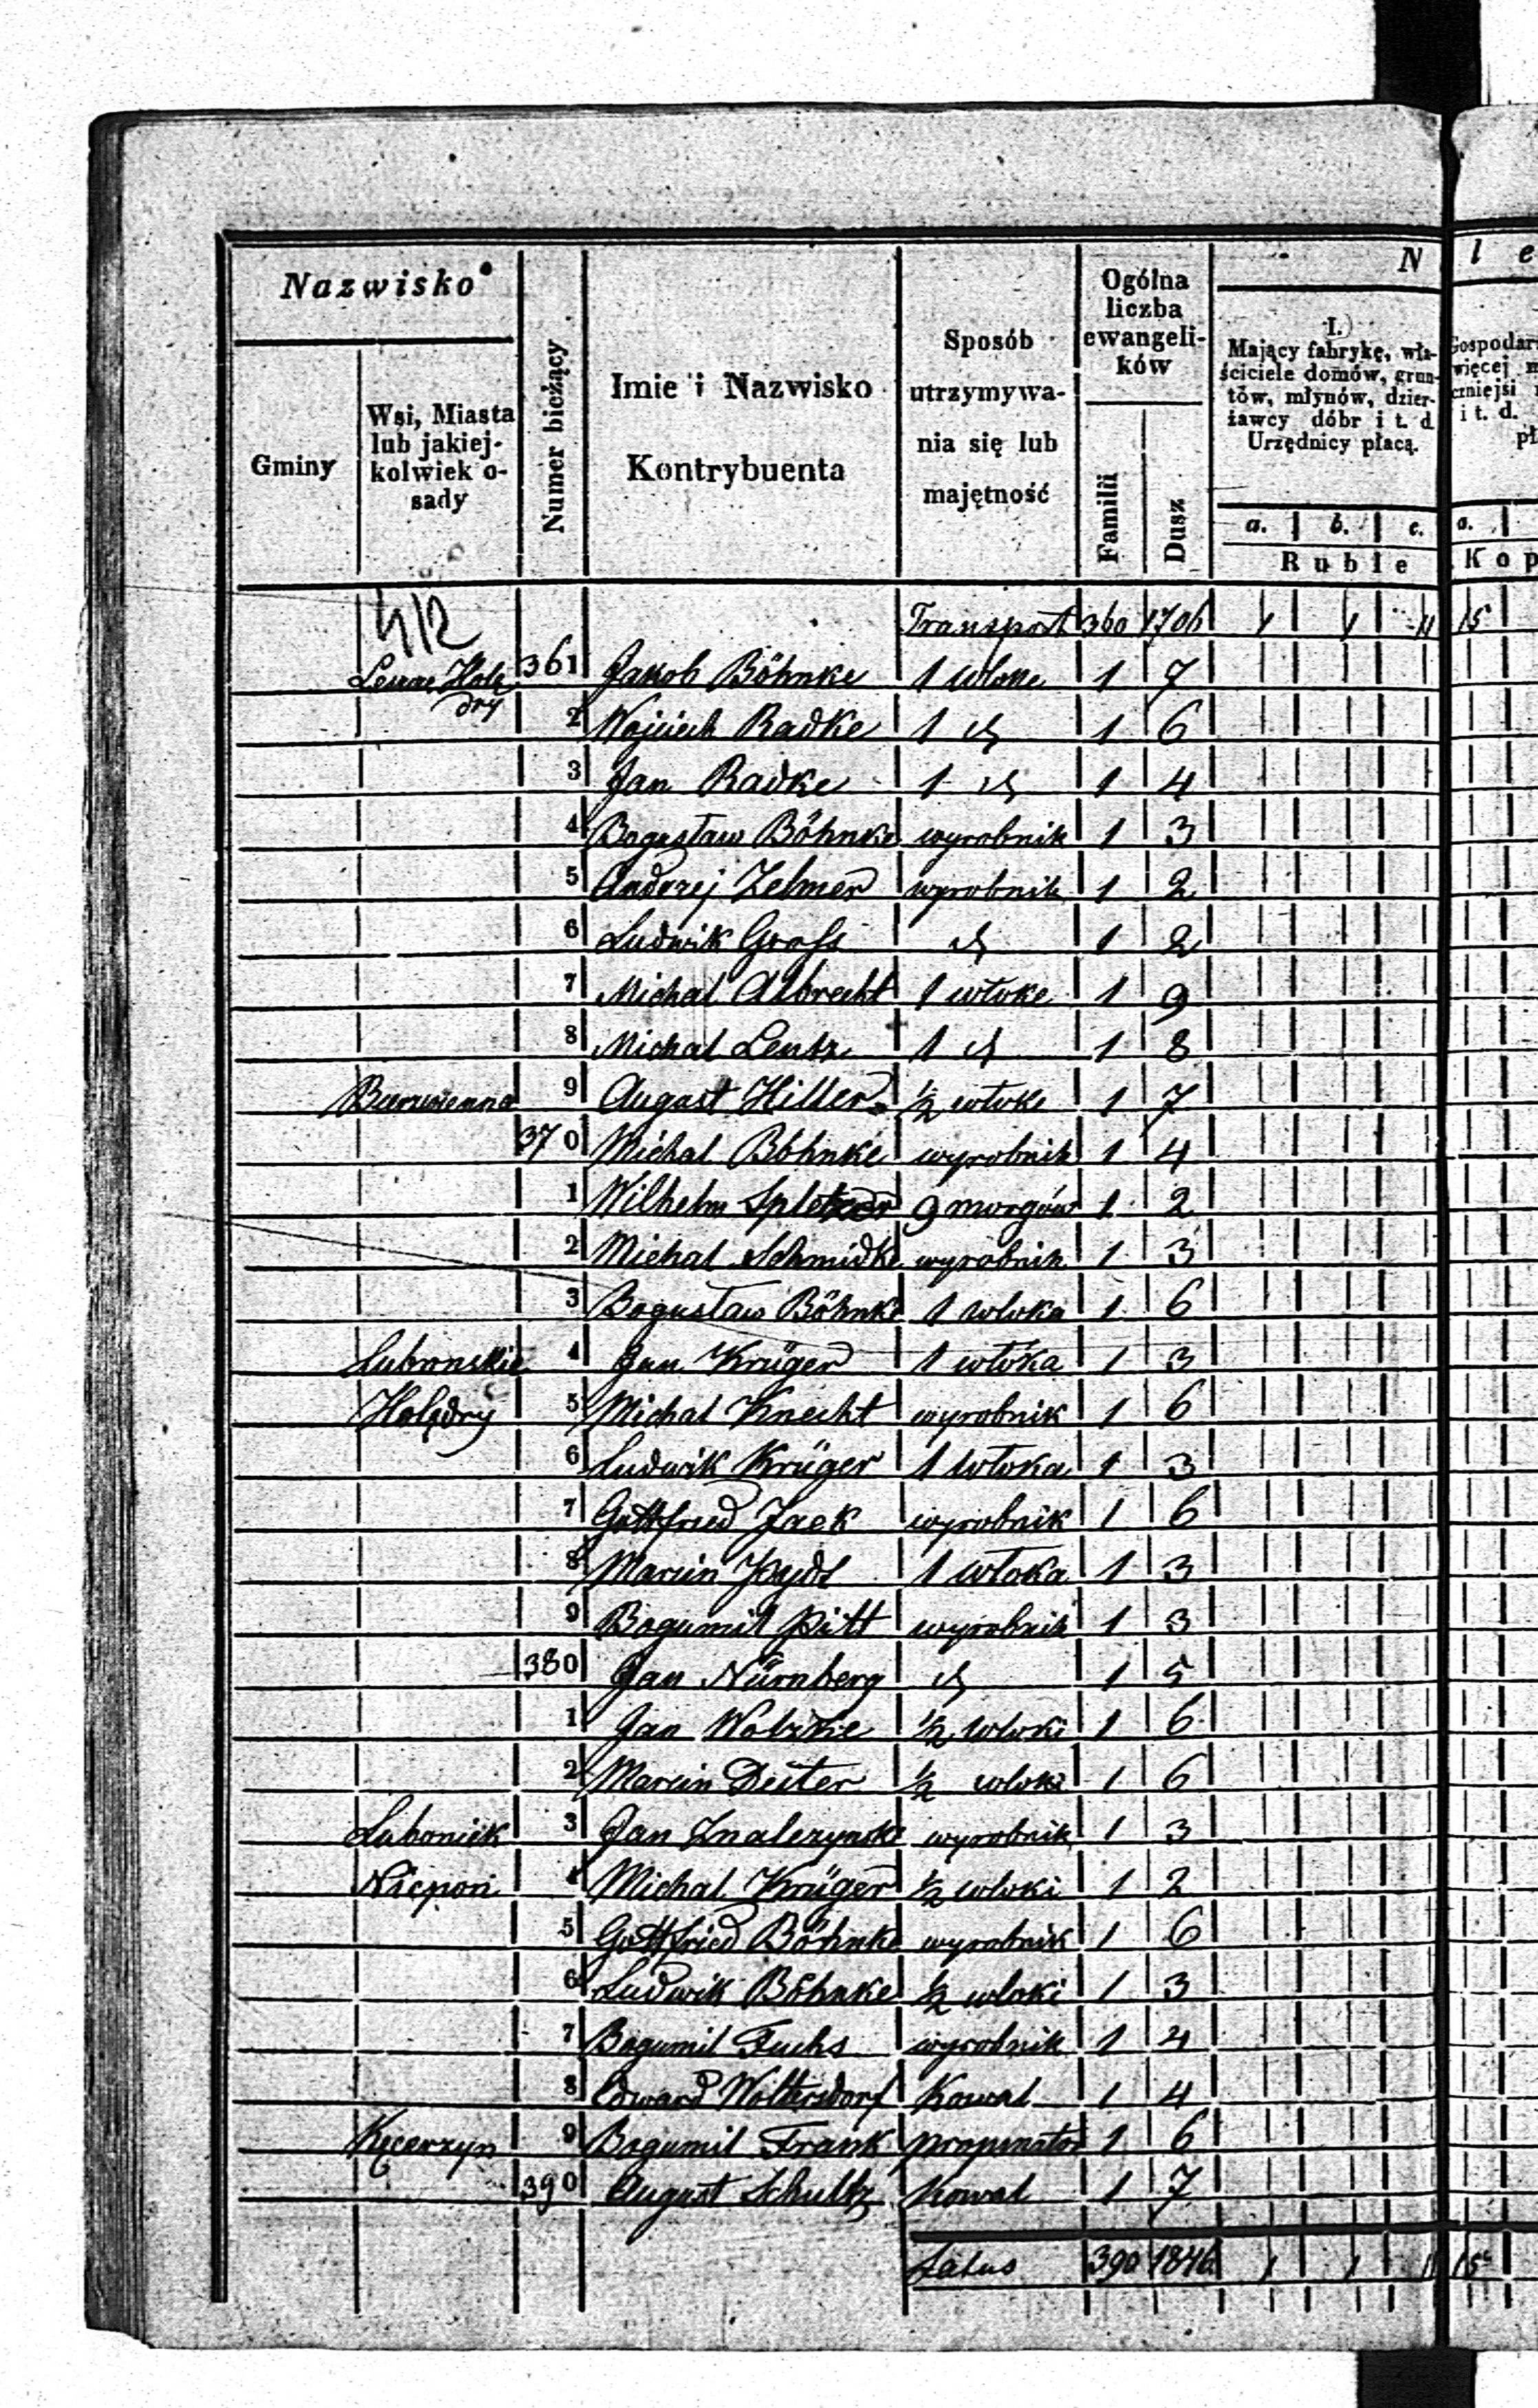 Nazwisko
Gminy
Wsi, Miasta lub jakiej-kolwiek o-sady
Numer bieżący
Imie i Nazwisko Kontrybuenta
Sposób utrzymywa-nia się lub majętność
Ogólna liczba ewangeli-ków
Familii
Dusz
N l e
I.
Mający fabrykę, wła-
ściciele domów, grun-
tów, młynów, dzier-
żawcy dóbr i t. d
Urzędnicy płacą.
a. b. c.
Ruble
Gospodar
więcej
czniejsi
i t. d.
pł
a.
Kop
412
Transport 360 1706 1 1 11 15
Holę 361 Jakob Böhnke 1 wloke 1 7
dry
2 Wojciech Radke 1 1 6
3 Jan Radke 1 1 4
4 Bogusław Böhnke wyrobnik 1 3
5 Andrzej Zelmer wyrobnik 1 2
6 Ludwik Groſs 1 2
7 Michal Albrecht 1 wloke 1 9
8 Michal Lentz 1 1 8
9 August Hiller ½ wloke 1 7
370 Michal Böhnke wyrobnik 1 4
1 Wilhelm 9 morgów 1 2
2 Michal Schmidke wyrobnik 1 3
3 Bogusław Böhnke 1 wloka 1 6
Lubonskie 4 Jan Krüger 1 włoka 1 3
Holędry 5 Michal Knecht wyrobnik 1 6
6 Ludwik Krüger 1 włoka 1 3
7 Gottfried Jaek wyrobnik 1 6
8 Marcin 1 włoka 1 3
9 Bogumil Pitt wyrobnik 1 3
380 Jan Nürnberg 1 5
1 Jan ½ wloki 1 6
2 Marcin Deiter ½ wloki 1 6
Luboniek 3 Jan wyrobnik 1 3
Niepon 4 Michal Krüger ½ wloki 1 2
5 Gottfried Böhnke wyrobnik 1 6
6 Ludwik Böhnke ½ wloki 1 3
7 Bogumil Fuchs wyrobnik 1 4
8 Edward Woltersdorf Kowal 1 4
Kęcerzyn 9 Bogumil Frank propinator 1 6
390 August Schultz Kowal 1 7
Latus 390 1846 1 1 11 15